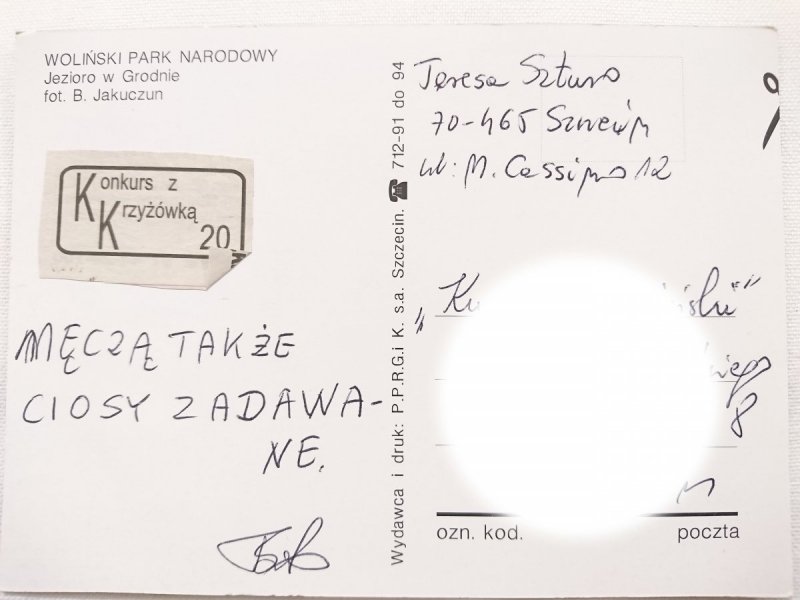 WOLIŃSKI PARK NARODOWY
Jezioro w Grodnie
fot. B. Jakuczun
Konkurs z
Krzyżówką
20
MĘCZĄ TAKŻE
CIOSY ZADAWA-
NE.
Wydawca i druk: P.P.R.G.i K. s.a. Szczecin. ☎ 712-91 do 94
Teresa
70-465
ul: M. Cassino 12
8
ozn. kod. poczta